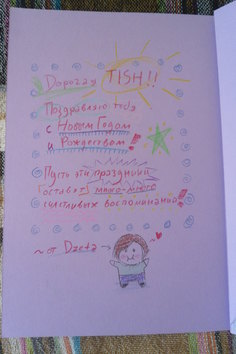 Дорогая TISH!!
Поздравляю тебя
с Новым Годом
и Рождеством!
Пусть эти праздники
оставят много-много
счастливых воспоминаний!
~ от Dzeta →